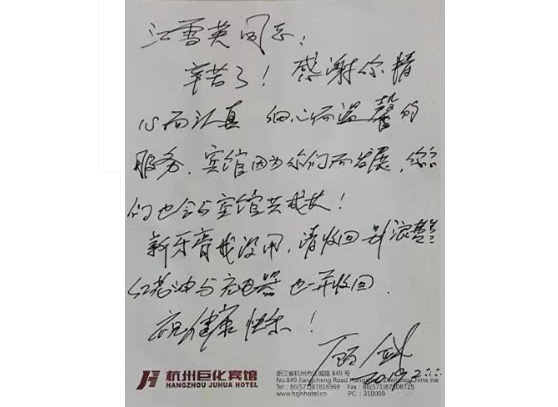 江雪英同志：
辛苦了！感谢你精
心而认真 细心而温馨的
服务，宾馆因为你们而发展，你
们也会与宾馆共成长！
新牙膏我没用，请收回别浪费
红花油与充电器也一并收回．
祝健康快乐！
2019.2
杭州巨化宾馆
HANGZHOU JUHUA HOTEL
浙江省杭州市江城路 849 号
No.849 Jiangcheng Road Hangzhou Zhejiang China
Tel: 86(571)87816969 Fax: 86(571)87808725
www.hzjhhotel.cn PC: 310009